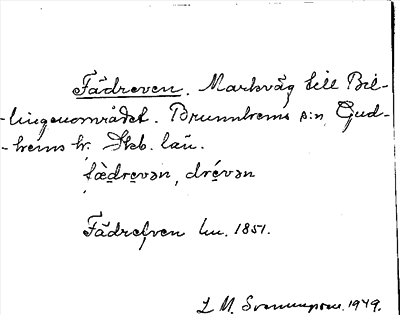 Fädreven. Markväg till Bil-
-lingenområdet. Brunnhems s:n, Gud-
-hems hr. Skb. län.
fæ̀drevən, drévən
Fädrefven hu. 1851.
L M. Svennungsson. 1949.